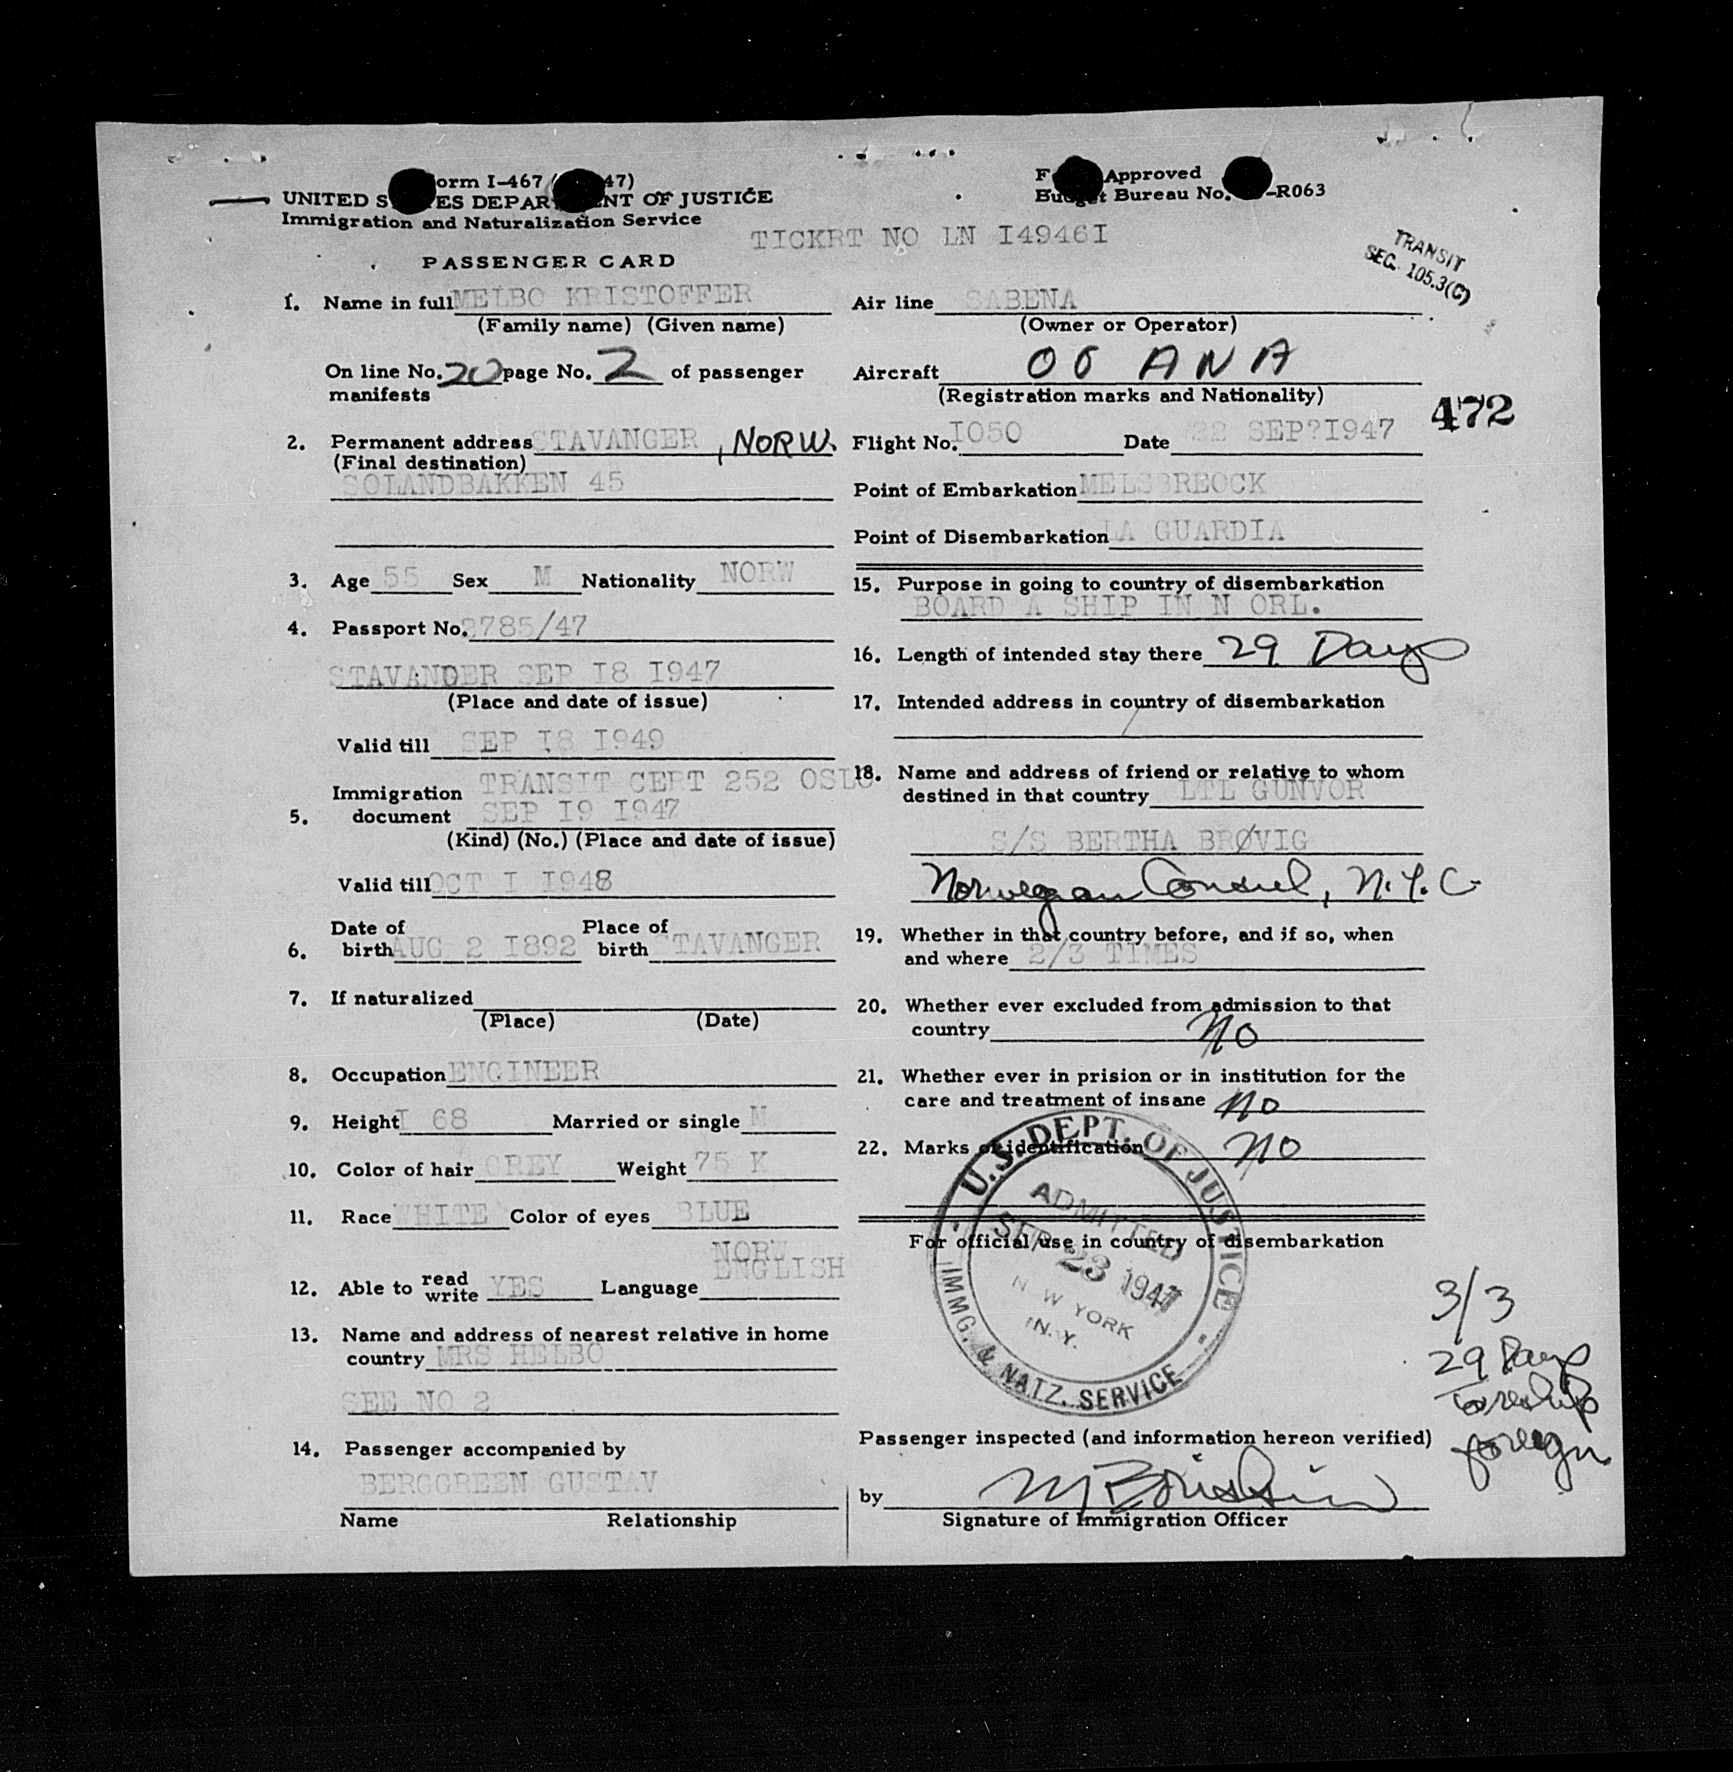 orm I-467 ( 47)
UNITED S ES DEPAR ENT OF JUSTICE
Immigration and Naturalization Service
F Approved
Budget Bureau No. -R063
TICKRT NO LN I4946I
TRANSIT
SEC. 105.3(C)
PASSENGER CARD
1. Name in full MELBO KRISTOFFER
(Family name) (Given name)
On line No. 20 page No. 2 of passenger
manifests
2. Permanent address STAVANGER , NORW.
(Final destination)
SOLANDBAKKEN 45
3. Age 55 Sex M Nationality NORW
4. Passport No. 2785/47
STAVANDER SEP I8 I947
(Place and date of issue)
Valid till SEP I8 I949
TRANSIT CERT 252 OSLO
Immigration
5. document SEP I9 I947
(Kind) (No.) (Place and date of issue)
Valid till OCT I I948
6. Date of birth AUG 2 I892 Place of birth STAVANGER
7. If naturalized
(Place) (Date)
8. Occupation ENGINEER
9. Height I 68 Married or single M
10. Color of hair GREY Weight 75 K
11. Race WHITE Color of eyes BLUE
NORW
ENGLISH
12. Able to read write YES Language
13. Name and address of nearest relative in home
country MRS HELBO
SEE NO 2
14. Passenger accompanied by
BERGGREEN GUSTAV
Name Relationship
Air line SABENA
(Owner or Operator)
Aircraft OO ANA
(Registration marks and Nationality)
472
Flight No. I050 Date 22 SEP?I947
Point of Embarkation MELSBREOCK
Point of Disembarkation LA GUARDIA
15. Purpose in going to country of disembarkation
BOARD A SHIP IN N ORL.
16. Length of intended stay there 29 Days
17. Intended address in country of disembarkation
/
18. Name and address of friend or relative to whom
destined in that country LTL GUNVOR
S/S BERTHA BRØVIG
Norwegian Consul, N.Y.C.
19. Whether in that country before, and if so, when
and where 2/3 TIMES
20. Whether ever excluded from admission to that
country No
21. Whether ever in prision or in institution for the
care and treatment of insane No
22. Marks of identification No
For official use in country of disembarkation
U.S. DEPT. OF JUSTICE
ADMITTED
SEP 23 1947
N W YORK
N.Y.
IMMG. & NATZ. SERVICE
3/3
29 Days
foreign
Passenger inspected (and information hereon verified)
by
Signature of Immigration Officer